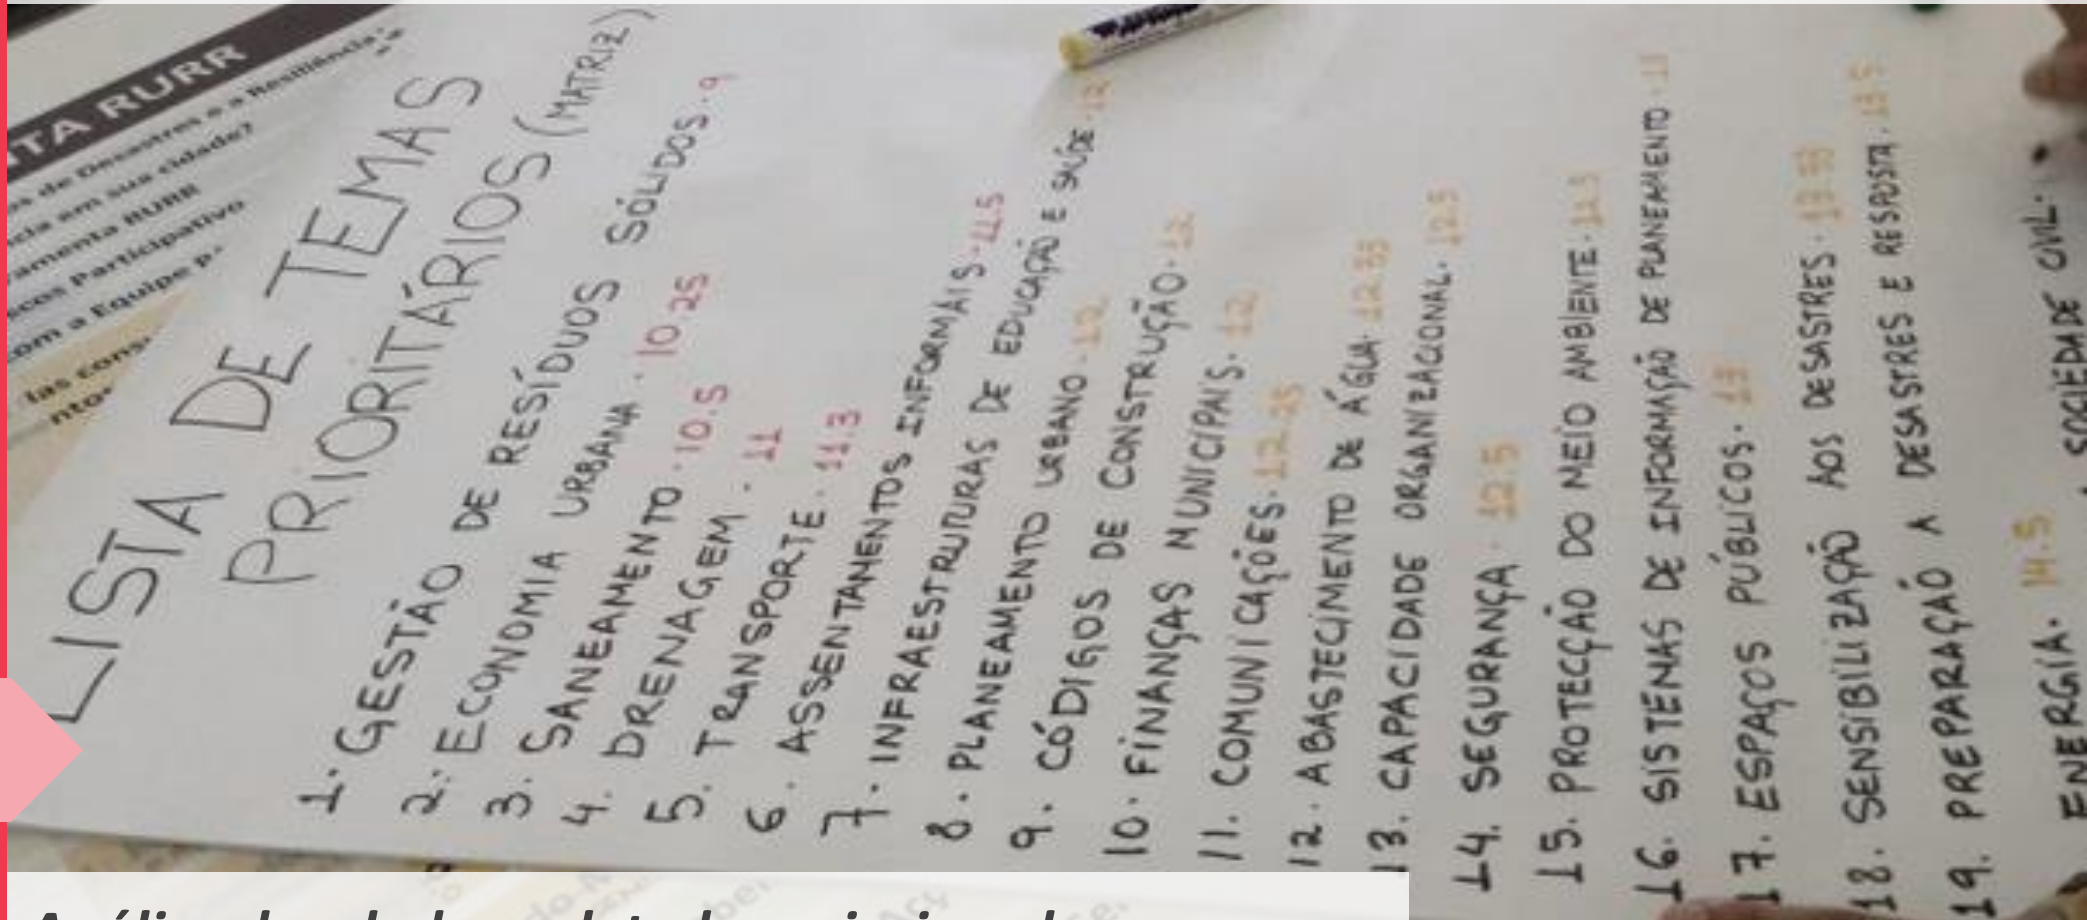 TA RURR
de Desastres e a Resiliência
em sua cidade?
RURR
Participativo
com a Equipe
las cons
LISTA DE TEMAS
PRIORITÁRIOS (MATRIZ)
1. GESTÃO DE RESÍDUOS SÓLIDOS. 9
2. ECONOMIA URBANA. 10.25
3. SANEAMENTO. 10.5
4. DRENAGEM. 11
5. TRANSPORTE. 11.3
6. ASSENTAMENTOS INFORMAIS. 11.5
7. INFRAESTRUTURAS DE EDUCAÇÃO E SAÚDE. 12
8. PLANEAMENTO URBANO. 12
9. CÓDIGOS DE CONSTRUÇÃO. 12
10. FINANÇAS MUNICIPAIS. 12
11. COMUNICAÇÕES. 12.25
12. ABASTECIMENTO DE ÁGUA. 12.33
13. CAPACIDADE ORGANIZACIONAL. 12.5
14. SEGURANÇA. 12.5
15. PROTECÇÃO DO MEIO AMBIENTE. 12.5
16. SISTEMAS DE INFORMAÇÃO DE PLANEAMENTO.
17. ESPAÇOS PÚBLICOS. 13
18. SENSIBILIZAÇÃO AOS DESASTRES. 13.33
19. PREPARAÇÃO A DESASTRES E RESPOSTA. 13.5
ENERGIA. 14.5
SOCIEDADE CIVIL.